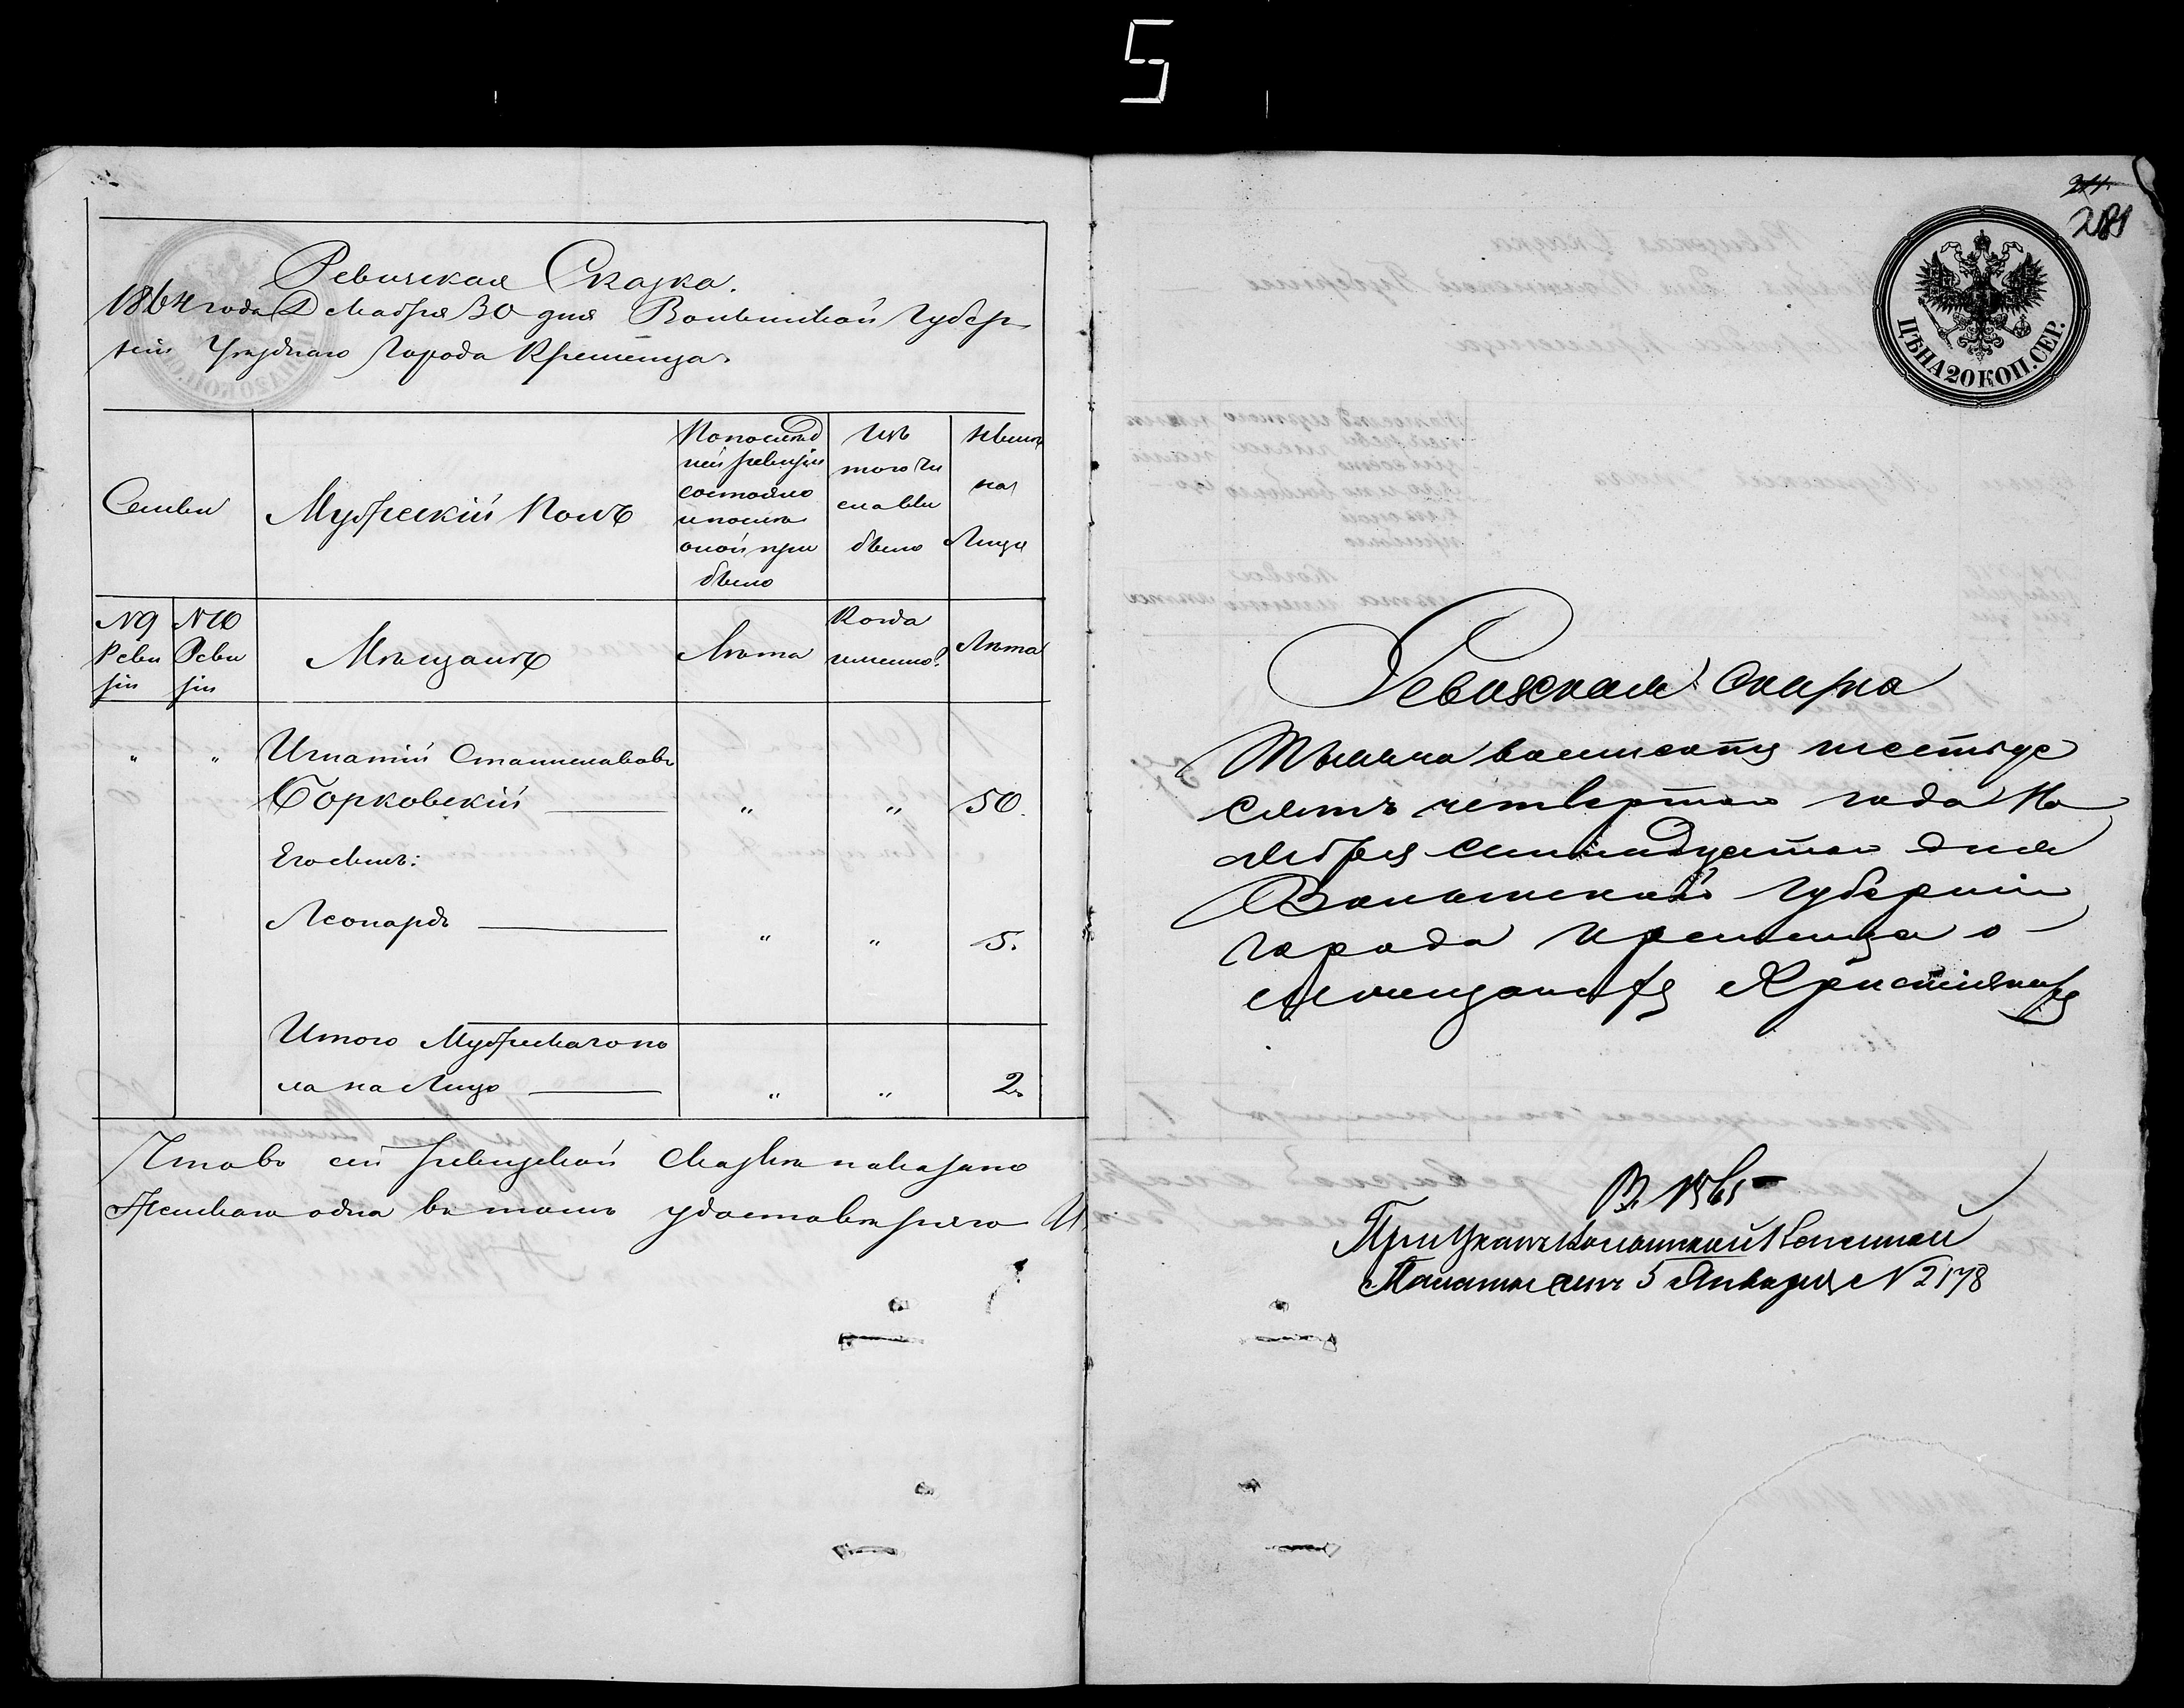 5
Ревизская Сказка.
1864 года Декабря 30 дня Волынской Губер
ніи Уѣзднаго Города Кременца.
Семьи
Мужескій Полъ
По послѣд
ней ревизіи
состояло
и послѣ
оной при
было
Изъ
того чи
сла вы
было
Нынѣ
на
Лицо
№ 9
Реви
зіи
№ 10
Реви
зіи
Мѣщанъ
Лѣта
Когда
именно?
Лѣта
„ „ Игнатій Станиславовъ
Борковскій „ „ 50.
Его сынъ:
Леонардъ „ „ 5.
Итого Мужескаго по
ла на Лицо „ „ 2.
Что въ сей ревизской сказкѣ показано
Женскаго одна въ томъ удостовѣряю
211.
281
ЦѢНА 20 КОП. СЕР.
Ревизская Сказка
Тысяча восемсотъ шестьде
сятъ четвертаго года Но
ября семнадцатаго дня
Волынской губерніи
города Кременца о
мѣщанахъ Христіянахъ
В. 1865
При Указѣ Волынской Казенной
Палаты отъ 5 Января № 2178